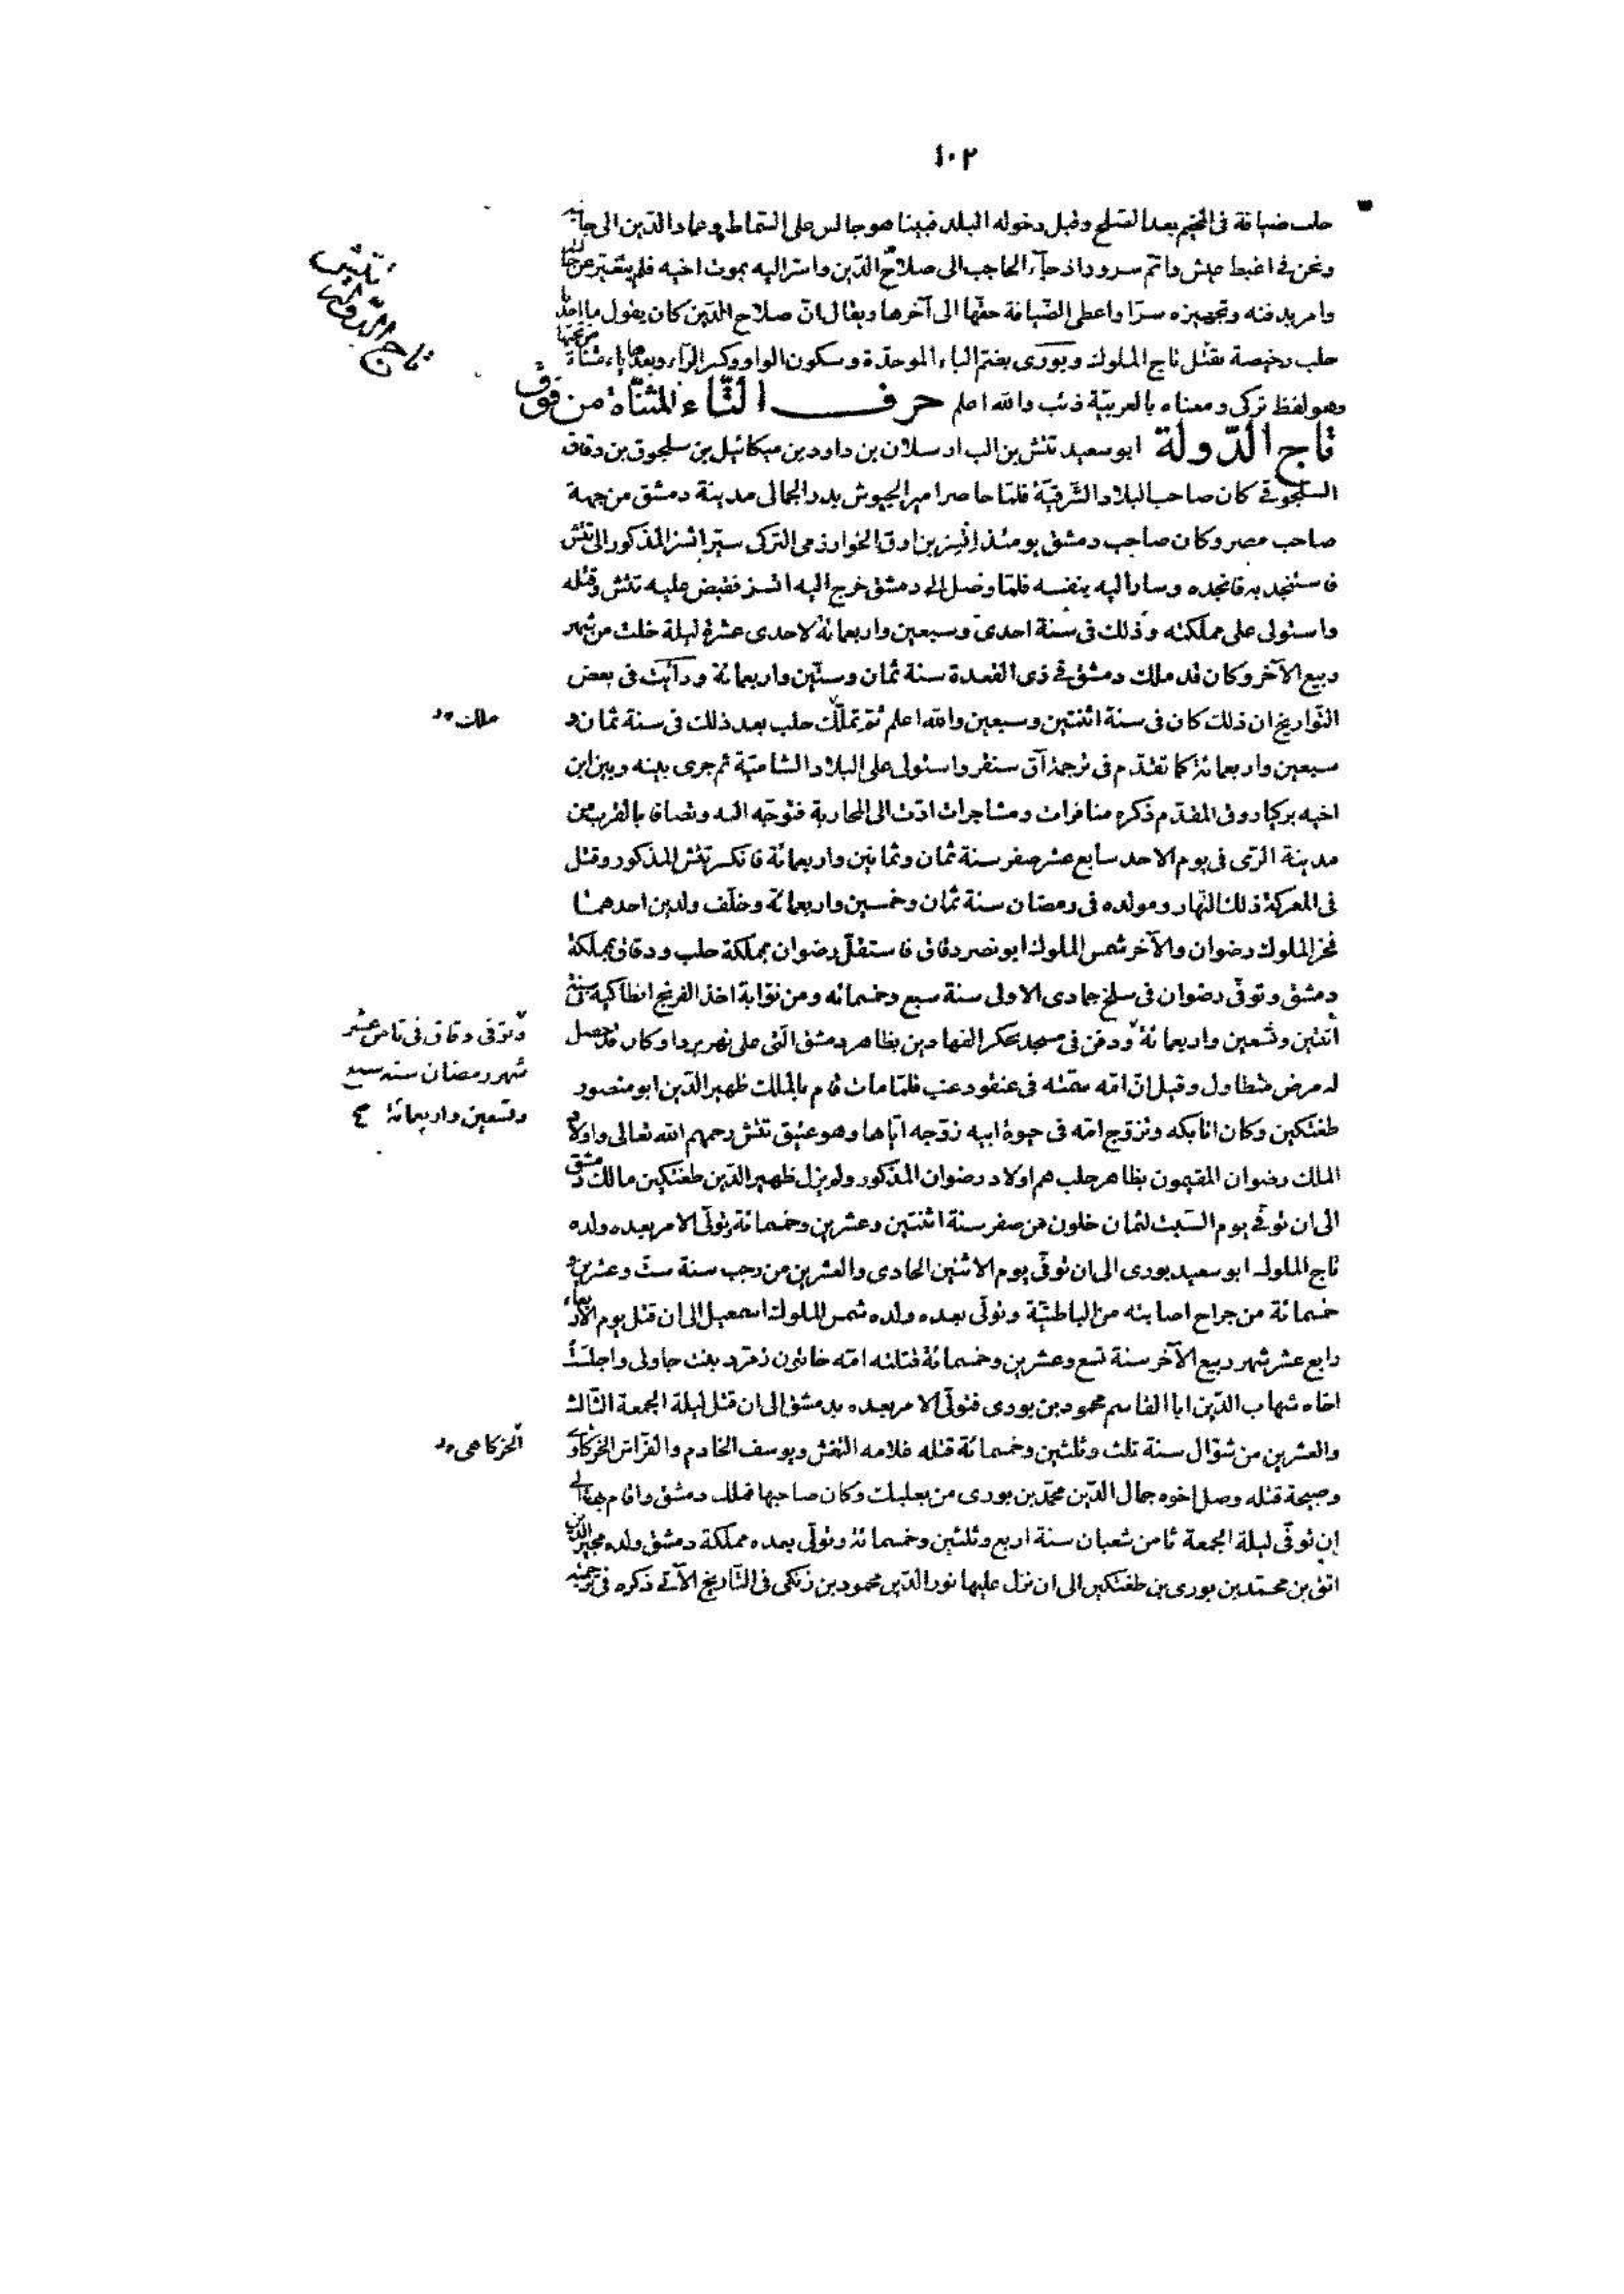 ١٠٢
حلب ضيافة فى المخيم بعد الصلح وقبل دخوله البلد فبينا هو جالس على السماط وعماد الدين الى جانبه
ونحن فى اغبط عيش واتم سرور اذ جآء الحاجب الى صلاح الدين واسر اليه بموت اخيه فلم يتغير عن حاله
وامر بدفنه وتجهيزه سرّا واعطى الضيافة حقها الى آخرها ويقال انّ صلاح الدين كان يقول ما اخذنا
حلب رخيصة بقتل تاج الملوك وبورى بضم الباء الموحدة وسكون الواو وكسر الرآء وبعدها ياء مثناة من تحتها
وهو لفظ تركى ومعناه بالعربيّة ذئب والله اعلم حرف التّاء المثنّاة من فوق
تتش
تاج الدّولة
تاج الدّولة ابو سعيد تتش بن الب ارسلان بن داود بن ميكائيل بن سلجوق بن دقاق
السلجوقى كان صاحب البلاد الشّرقيّة فلمّا حاصر امير الجيوش بدر الجمالى مدينة دمشق من جهة
صاحب مصر وكان صاحب دمشق يومئذ اتسز بن اوق الخوارزمى التركى سيّر اتسز المذكور الى تتش
فاستنجد به فانجده وسار اليه بنفسه فلمّا وصل الى دمشق خرج اليه اتسز فقبض عليه تتش وقتله
واستولى على مملكته وذلك فى سنة احدى وسبعين واربعمائة لاحدى عشرة ليلة خلت من شهر
ربيع الآخر وكان قد ملك دمشق فى ذى القعدة سنة ثمان وستّين واربعمائة ورأيت فى بعض
التّواريخ ان ذلك كان فى سنة اثنتين وسبعين والله اعلم ثمّ تملّك حلب بعد ذلك فى سنة ثمان و
ملك
سبعين واربعمائة كما تقدّم فى ترجمة آق سنقر واستولى على البلاد الشاميّة ثم جرى بينه وبين ابن
اخيه بركياروق المقدّم ذكره منافرات ومشاجرات ادّت الى المحاربة فتوجّه اليه وتصافا بالقرب من
مدينة الرّى فى يوم الاحد سابع عشر صفر سنة ثمان وثمانين واربعمائة فانكسر تتش المذكور وقتل
فى المعركة ذلك النّهار ومولده فى رمضان سنة ثمان وخمسين واربعمائة وخلّف ولدين احدهما
فخر الملوك رضوان والآخر شمس الملوك ابو نصر دقاق فاستقلّ رضوان بمملكة حلب ودقاق بمملكة
دمشق وتوفّى رضوان فى سلخ جمادى الاولى سنة سبع وخمسمائه ومن نوّابه اخذ الفرنج انطاكيه سنة
اثنتين وتسعين واربعمائة ودفن فى مسجد بحكر الفهادين بظاهر دمشق الّتى على نهر بردا وكان قد حصل
وتوفى دقاق فى ثامن عشر
شهر رمضان سنة سبع
وتسعين واربعمائة صح
له مرض متطاول وقيل انّ امّه سمّته فى عنقود عنب فلمّا مات قام بالملك ظهير الدّين ابو منصور
طغتكين وكان اتابكه وتزوّج امّه فى حيوة ابيه زوّجه ايّاها وهو عتيق تتش رحمهم الله تعالى واولاد
الملك رضوان المقيمون بظاهر حلب هم اولاد رضوان المذكور ولم يزل ظهير الدّين طغتكين مالك دمشق
الى ان توفّى يوم السّبت لثمان خلون من صفر سنة اثنتين وعشرين وخمسمائة وتولّى الامر بعده ولده
تاج الملوك ابو سعيد بورى الى ان توفّى يوم الاثنين الحادى والعشرين من رجب سنة ستّ وعشرين و
خمسمائة من جراح اصابته من الباطنيّة وتولّى بعده ولده شمس الملوك اسمعيل الى ان قتل يوم الاربعاء
رابع عشر شهر ربيع الآخر سنة تسع وعشرين وخمسمائة قتلته امّه خاتون زمرّد بنت جاولى واجلست
اخاه شهاب الدّين ابا القاسم محمود بن بورى فتولّى الامر بعده بدمشق الى ان قتل ليلة الجمعة الثّالث
والعشرين من شوّال سنة ثلث وثلثين وخمسمائة قتله غلامه البغش ويوسف الخادم والفرّاش الخركاوى
الخركاهى
وصبيحة قتله وصل اخوه جمال الدّين محمّد بن بورى من بعلبك وكان صاحبها فملك دمشق واقام بها الى
ان توفّى ليلة الجمعة ثامن شعبان سنة اربع وثلثين وخمسمائة وتولّى بعده مملكة دمشق ولده مجير الدّين
ابق بن محمّد بن بورى بن طغتكين الى ان نزل عليها نور الدّين محمود بن زنكى فى التّاريخ الآتى ذكره فى ترجمته